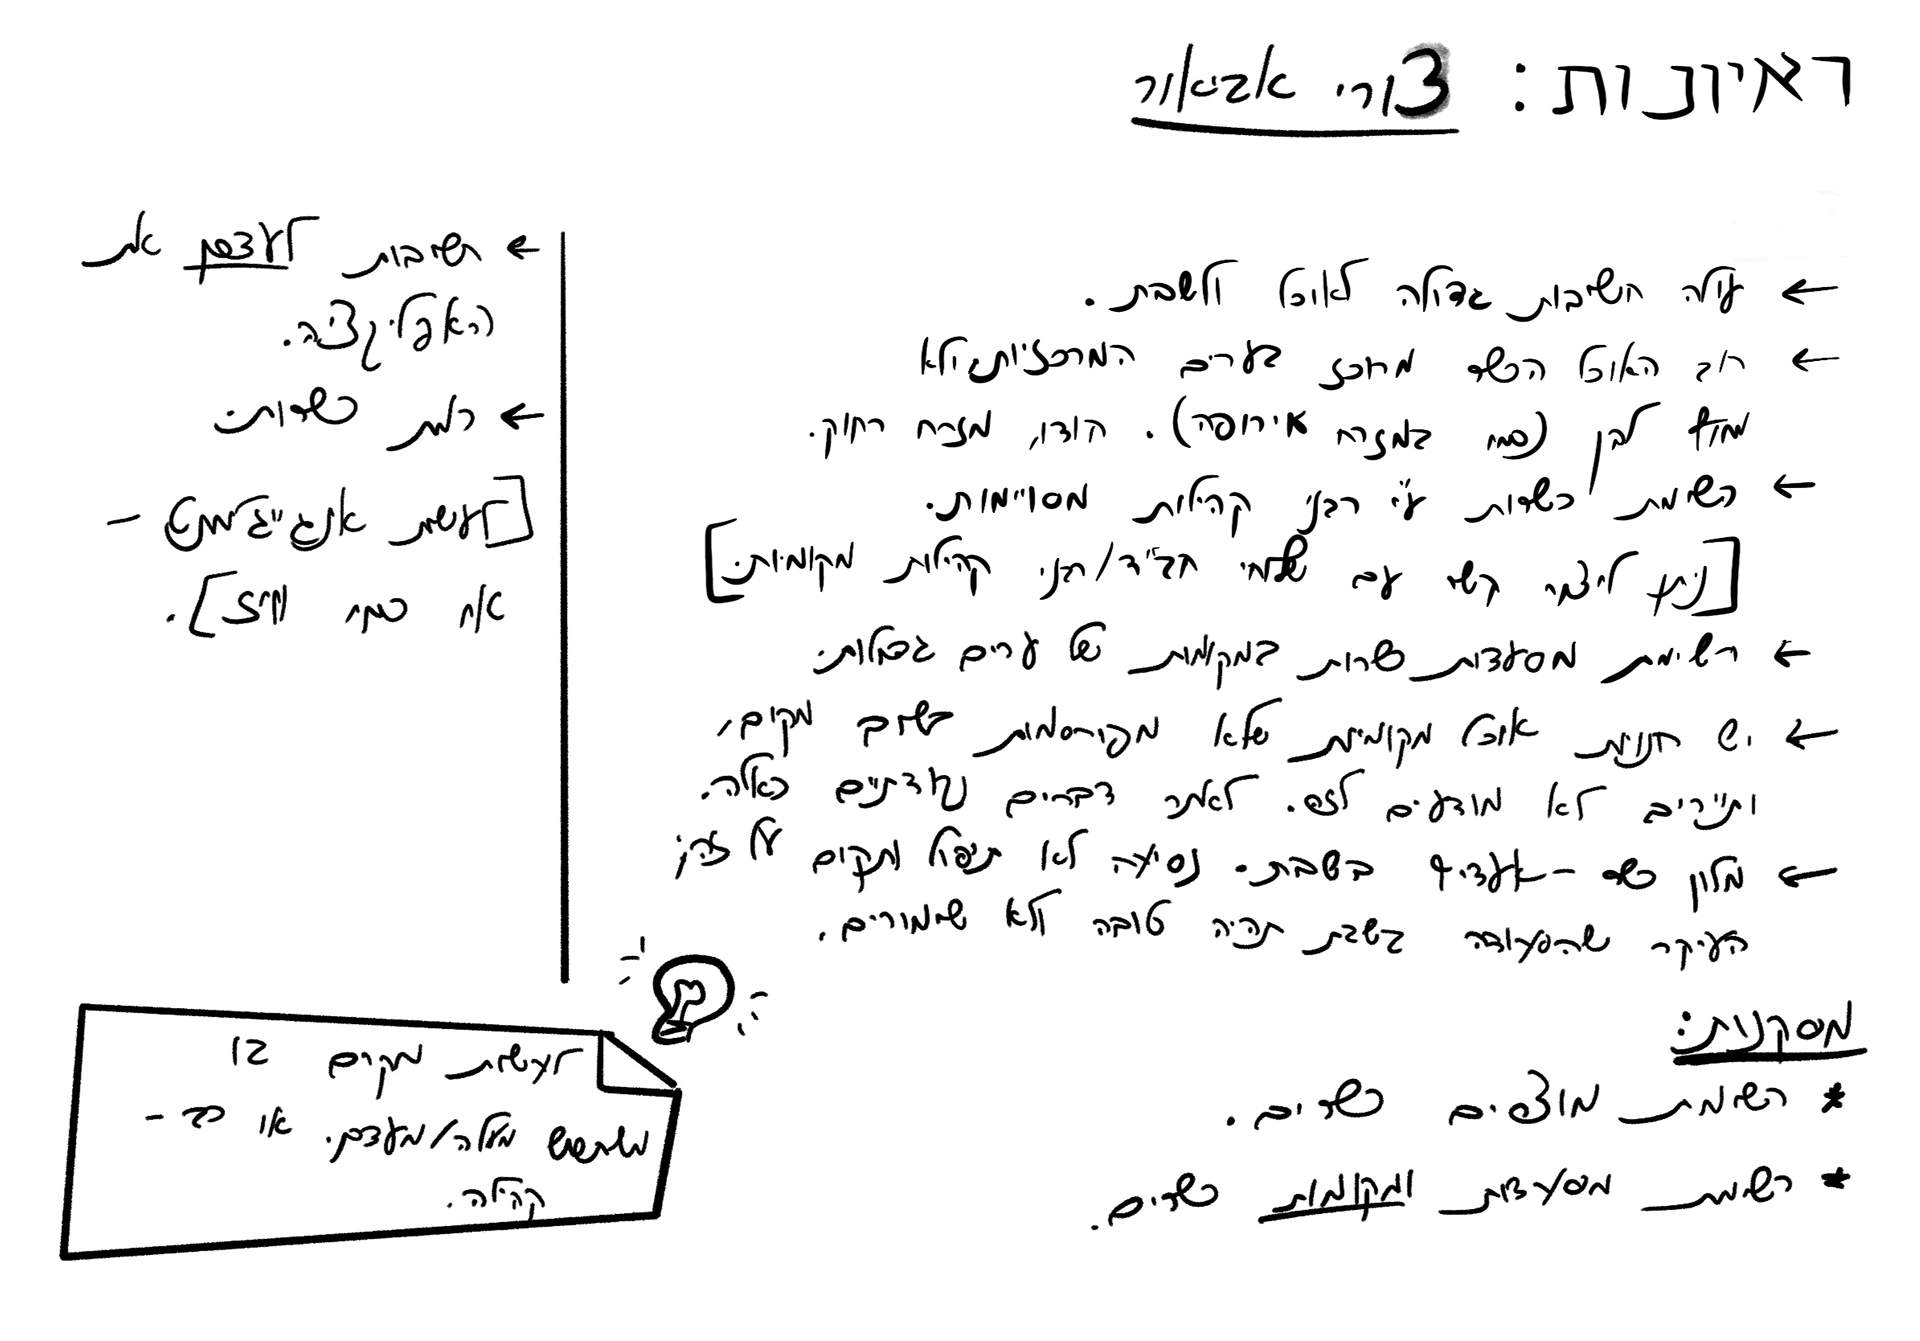 ראיונות: צורי אביאור
← עולה חשיבות גדולה לאוכל ולשבת.
← רוב האוכל הכשר מרוכז בערים המרכזיות, ולא
מחוץ לכן (כמו במזרח אירופה). הודו, מזרח רחוק.
← רשימת כשרות ע״י רבני קהילות מסויימות.
[ניתן ליצור קשר עם שלוחי חב״ד/רבני קהילות מקומיות.]
← רשימת מסעדות כשרות במקומות של ערים גדולות.
← יש חנויות אוכל מקומיות שלא מפורסמות בשוב מקום,
ותיירים לא מודעים לזה. לאתר דברים נקודתיים כאלה.
← מלון כשר – עדיף בשבת. נסיעה לא תיפול ותקום על זה,
העיקר שהסעודה בשבת תהיה טובה ולא שימורים.
מסקנות:
* רשימת מוצרים כשרים.
* רשימת מסעדות ומקומות כשרים.
← חשיבות לעדכן את
האפליקציה.
← רמת כשרות.
[לעשות אנגייג'מנט –
או כמו וויז].
לעשות מקום בו
משתמש מעלה/מעדכן. או כך –
קהילה.